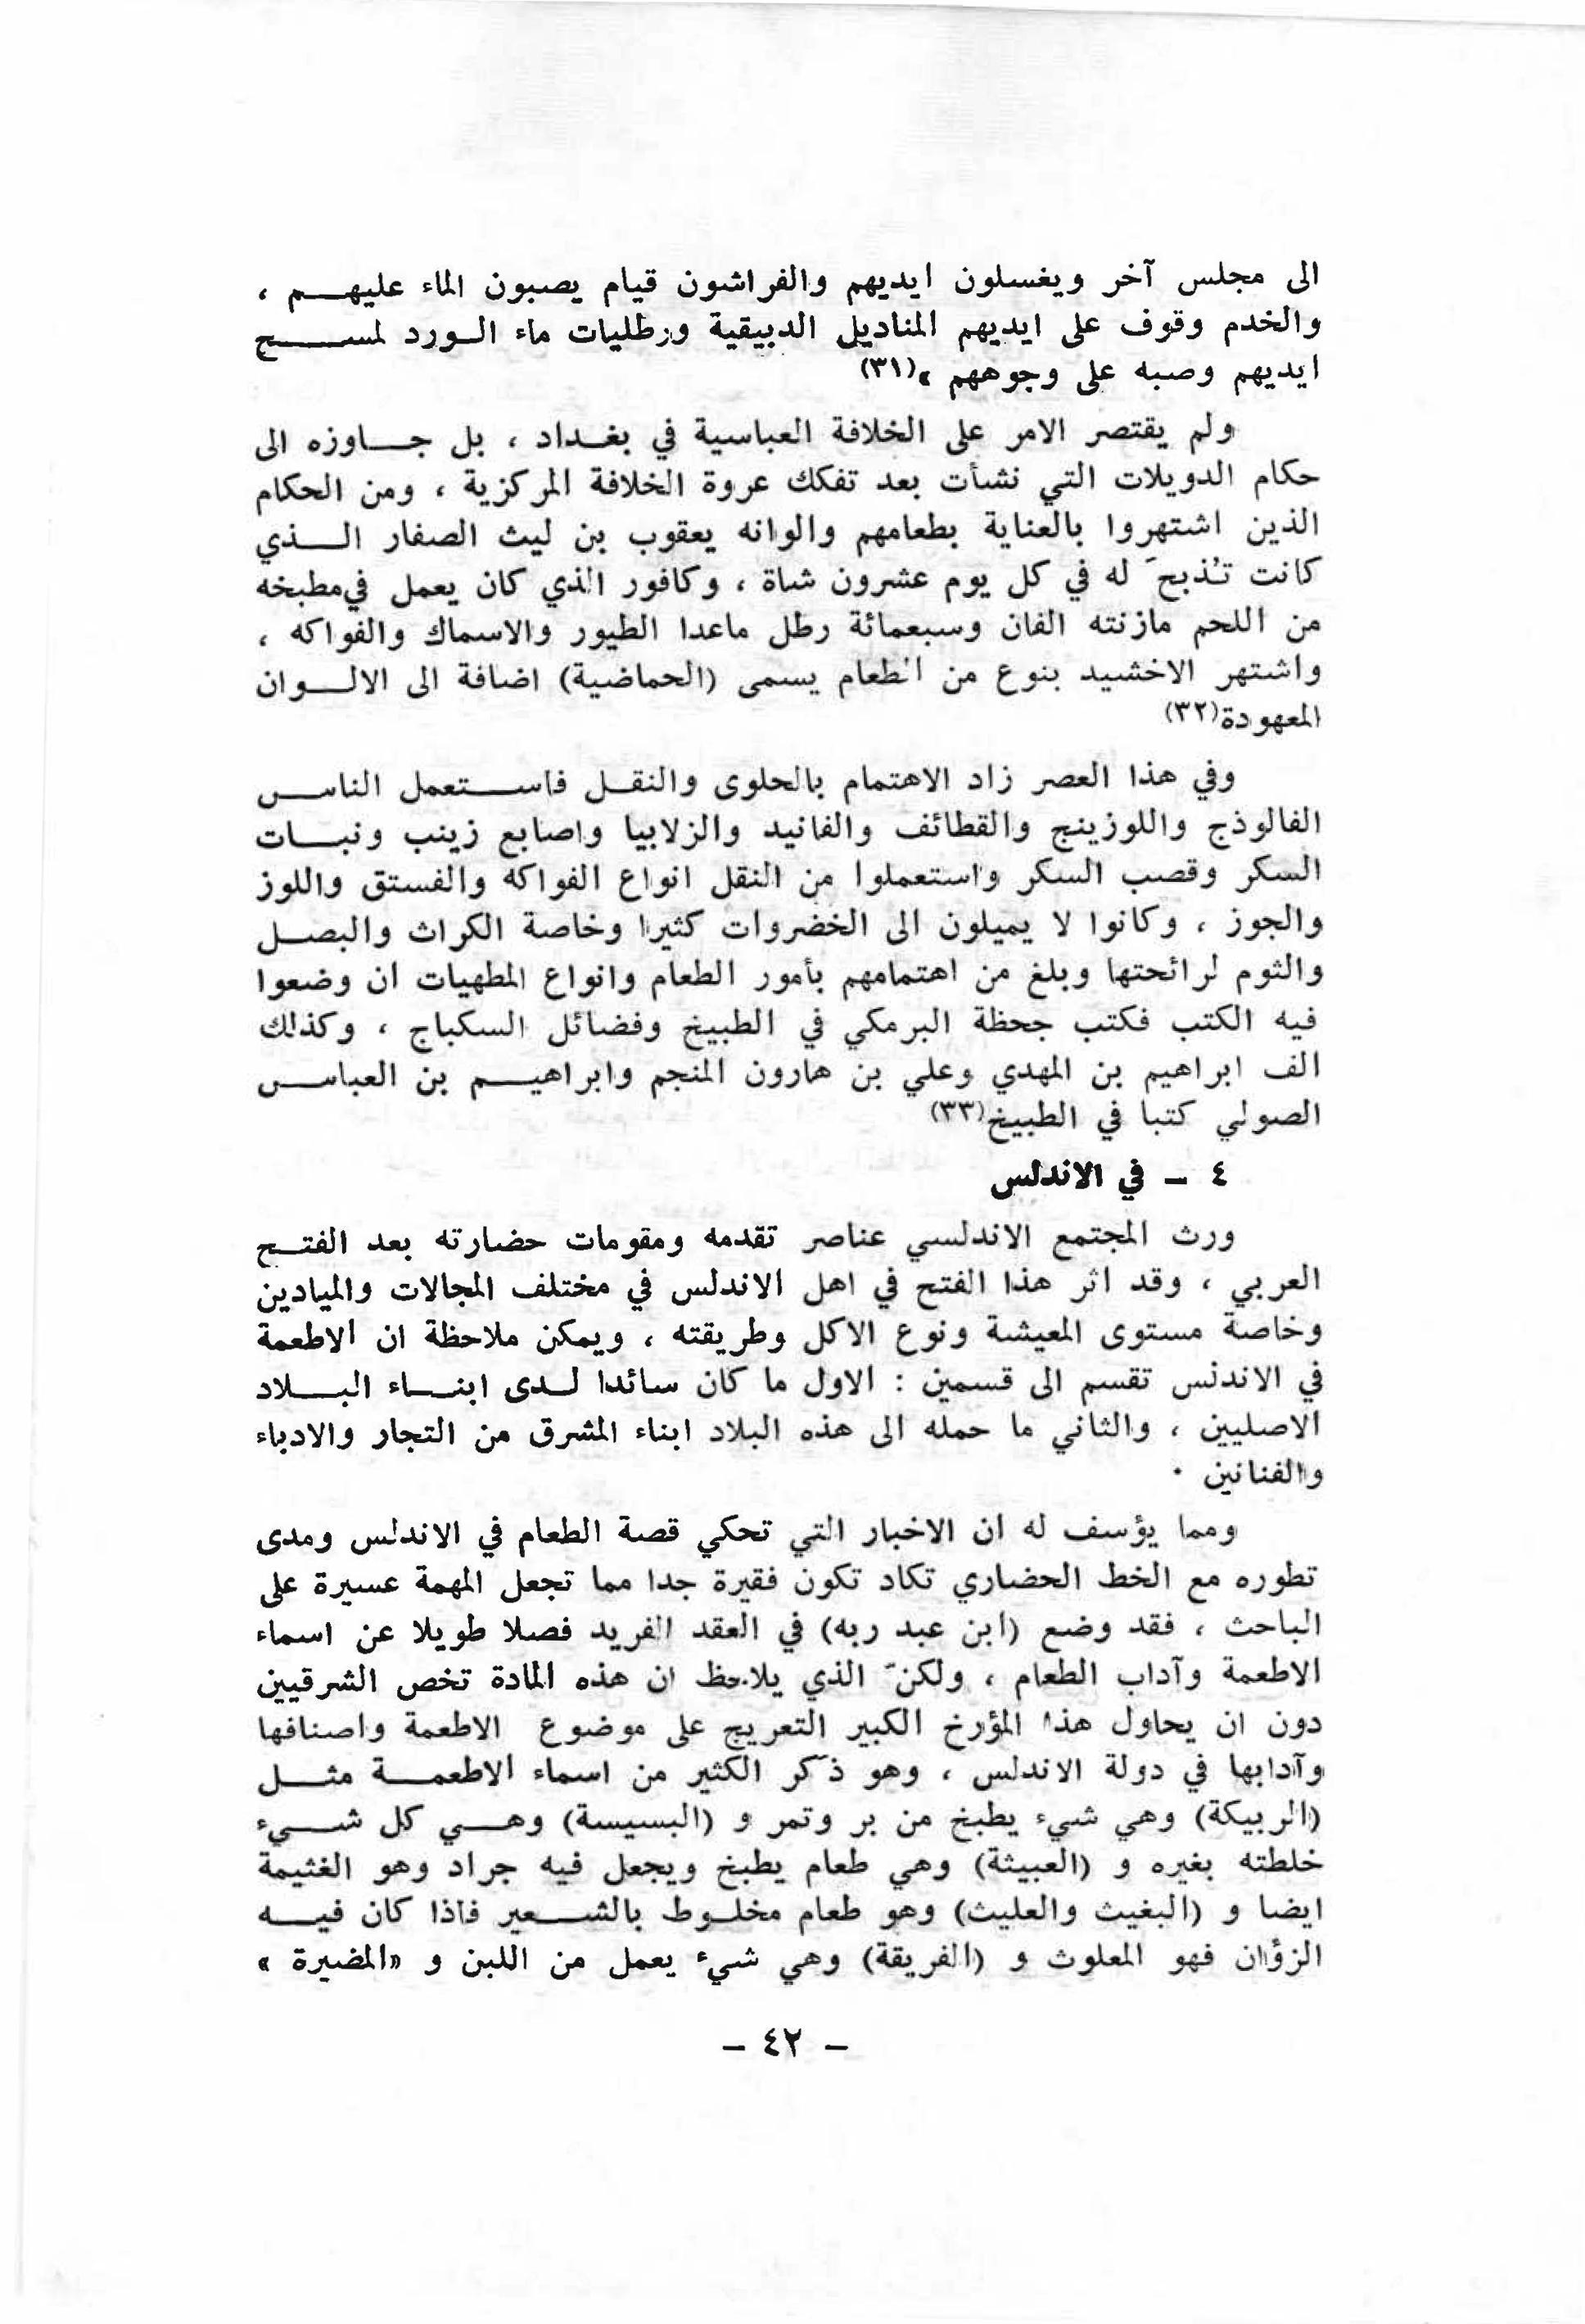 الى مجلس آخر ويغسلون ايديهم والفراشون قيام يصبون الماء عليهم ،
والخدم وقوف على ايديهم المناديل الدبيقية ورطليات ماء الورد لمسح
ايديهم وصبه على وجوههم »(٣١)
ولم يقتصر الامر على الخلافة العباسية في بغداد ، بل جاوزه الى
حكام الدويلات التي نشأت بعد تفكك عروة الخلافة المركزية ، ومن الحكام
الذين اشتهروا بالعناية بطعامهم والوانه يعقوب بن ليث الصفار الذي
كانت تُذبحَ له في كل يوم عشرون شاة ، وكافور الذي كان يعمل في مطبخه
من اللحم مازنته الفان وسبعمائة رطل ماعدا الطيور والاسماك والفواكه ،
واشتهر الاخشيد بنوع من الطعام يسمى (الحماضية) اضافة الى الالوان
المعهودة(٣٢)
وفي هذا العصر زاد الاهتمام بالحلوى والنقل فاستعمل الناس
الفالوذج واللوزينج والقطائف والفانيد والزلابيا واصابع زينب ونبات
السكر وقصب السكر واستعملوا من النقل انواع الفواكه والفستق واللوز
والجوز ، وكانوا لا يميلون الى الخضروات كثيرا وخاصة الكراث والبصل
والثوم لرائحتها وبلغ من اهتمامهم بأمور الطعام وانواع المطهيات ان وضعوا
فيه الكتب فكتب جحظة البرمكي في الطبيخ وفضائل السكباج ، وكذلك
الف ابراهيم بن المهدي وعلي بن هارون المنجم وابراهيم بن العباس
الصولي كتبا في الطبيخ(٣٣)
٤ – في الاندلس
ورث المجتمع الاندلسي عناصر تقدمه ومقومات حضارته بعد الفتح
العربي ، وقد اثر هذا الفتح في اهل الاندلس في مختلف المجالات والميادين
وخاصة مستوى المعيشة ونوع الاكل وطريقته ، ويمكن ملاحظة ان الاطعمة
في الاندلس تقسم الى قسمين : الاول ما كان سائدا لدى ابناء البلاد
الاصليين ، والثاني ما حمله الى هذه البلاد ابناء المشرق من التجار والادباء
والفنانين ٠
ومما يؤسف له ان الاخبار التي تحكي قصة الطعام في الاندلس ومدى
تطوره مع الخط الحضاري تكاد تكون فقيرة جدا مما تجعل المهمة عسيرة على
الباحث ، فقد وضع (ابن عبد ربه) في العقد الفريد فصلا طويلا عن اسماء
الاطعمة وآداب الطعام ، ولكنّ الذي يلاحظ ان هذه المادة تخص الشرقيين
دون ان يحاول هذا المؤرخ الكبير التعريج على موضوع الاطعمة واصنافها
وآدابها في دولة الاندلس ، وهو ذكر الكثير من اسماء الاطعمة مثل
(الربيكة) وهي شيء يطبخ من بر وتمر و (البسيسة) وهي كل شيء
خلطته بغيره و (العبيثة) وهي طعام يطبخ ويجعل فيه جراد وهو الغثيمة
ايضا و (البغيث والعليث) وهو طعام مخلوط بالشعير فاذا كان فيه
الزؤان فهو المعلوث و (الفريقة) وهي شيء يعمل من اللبن و «المضيرة »
– ٤٢ –